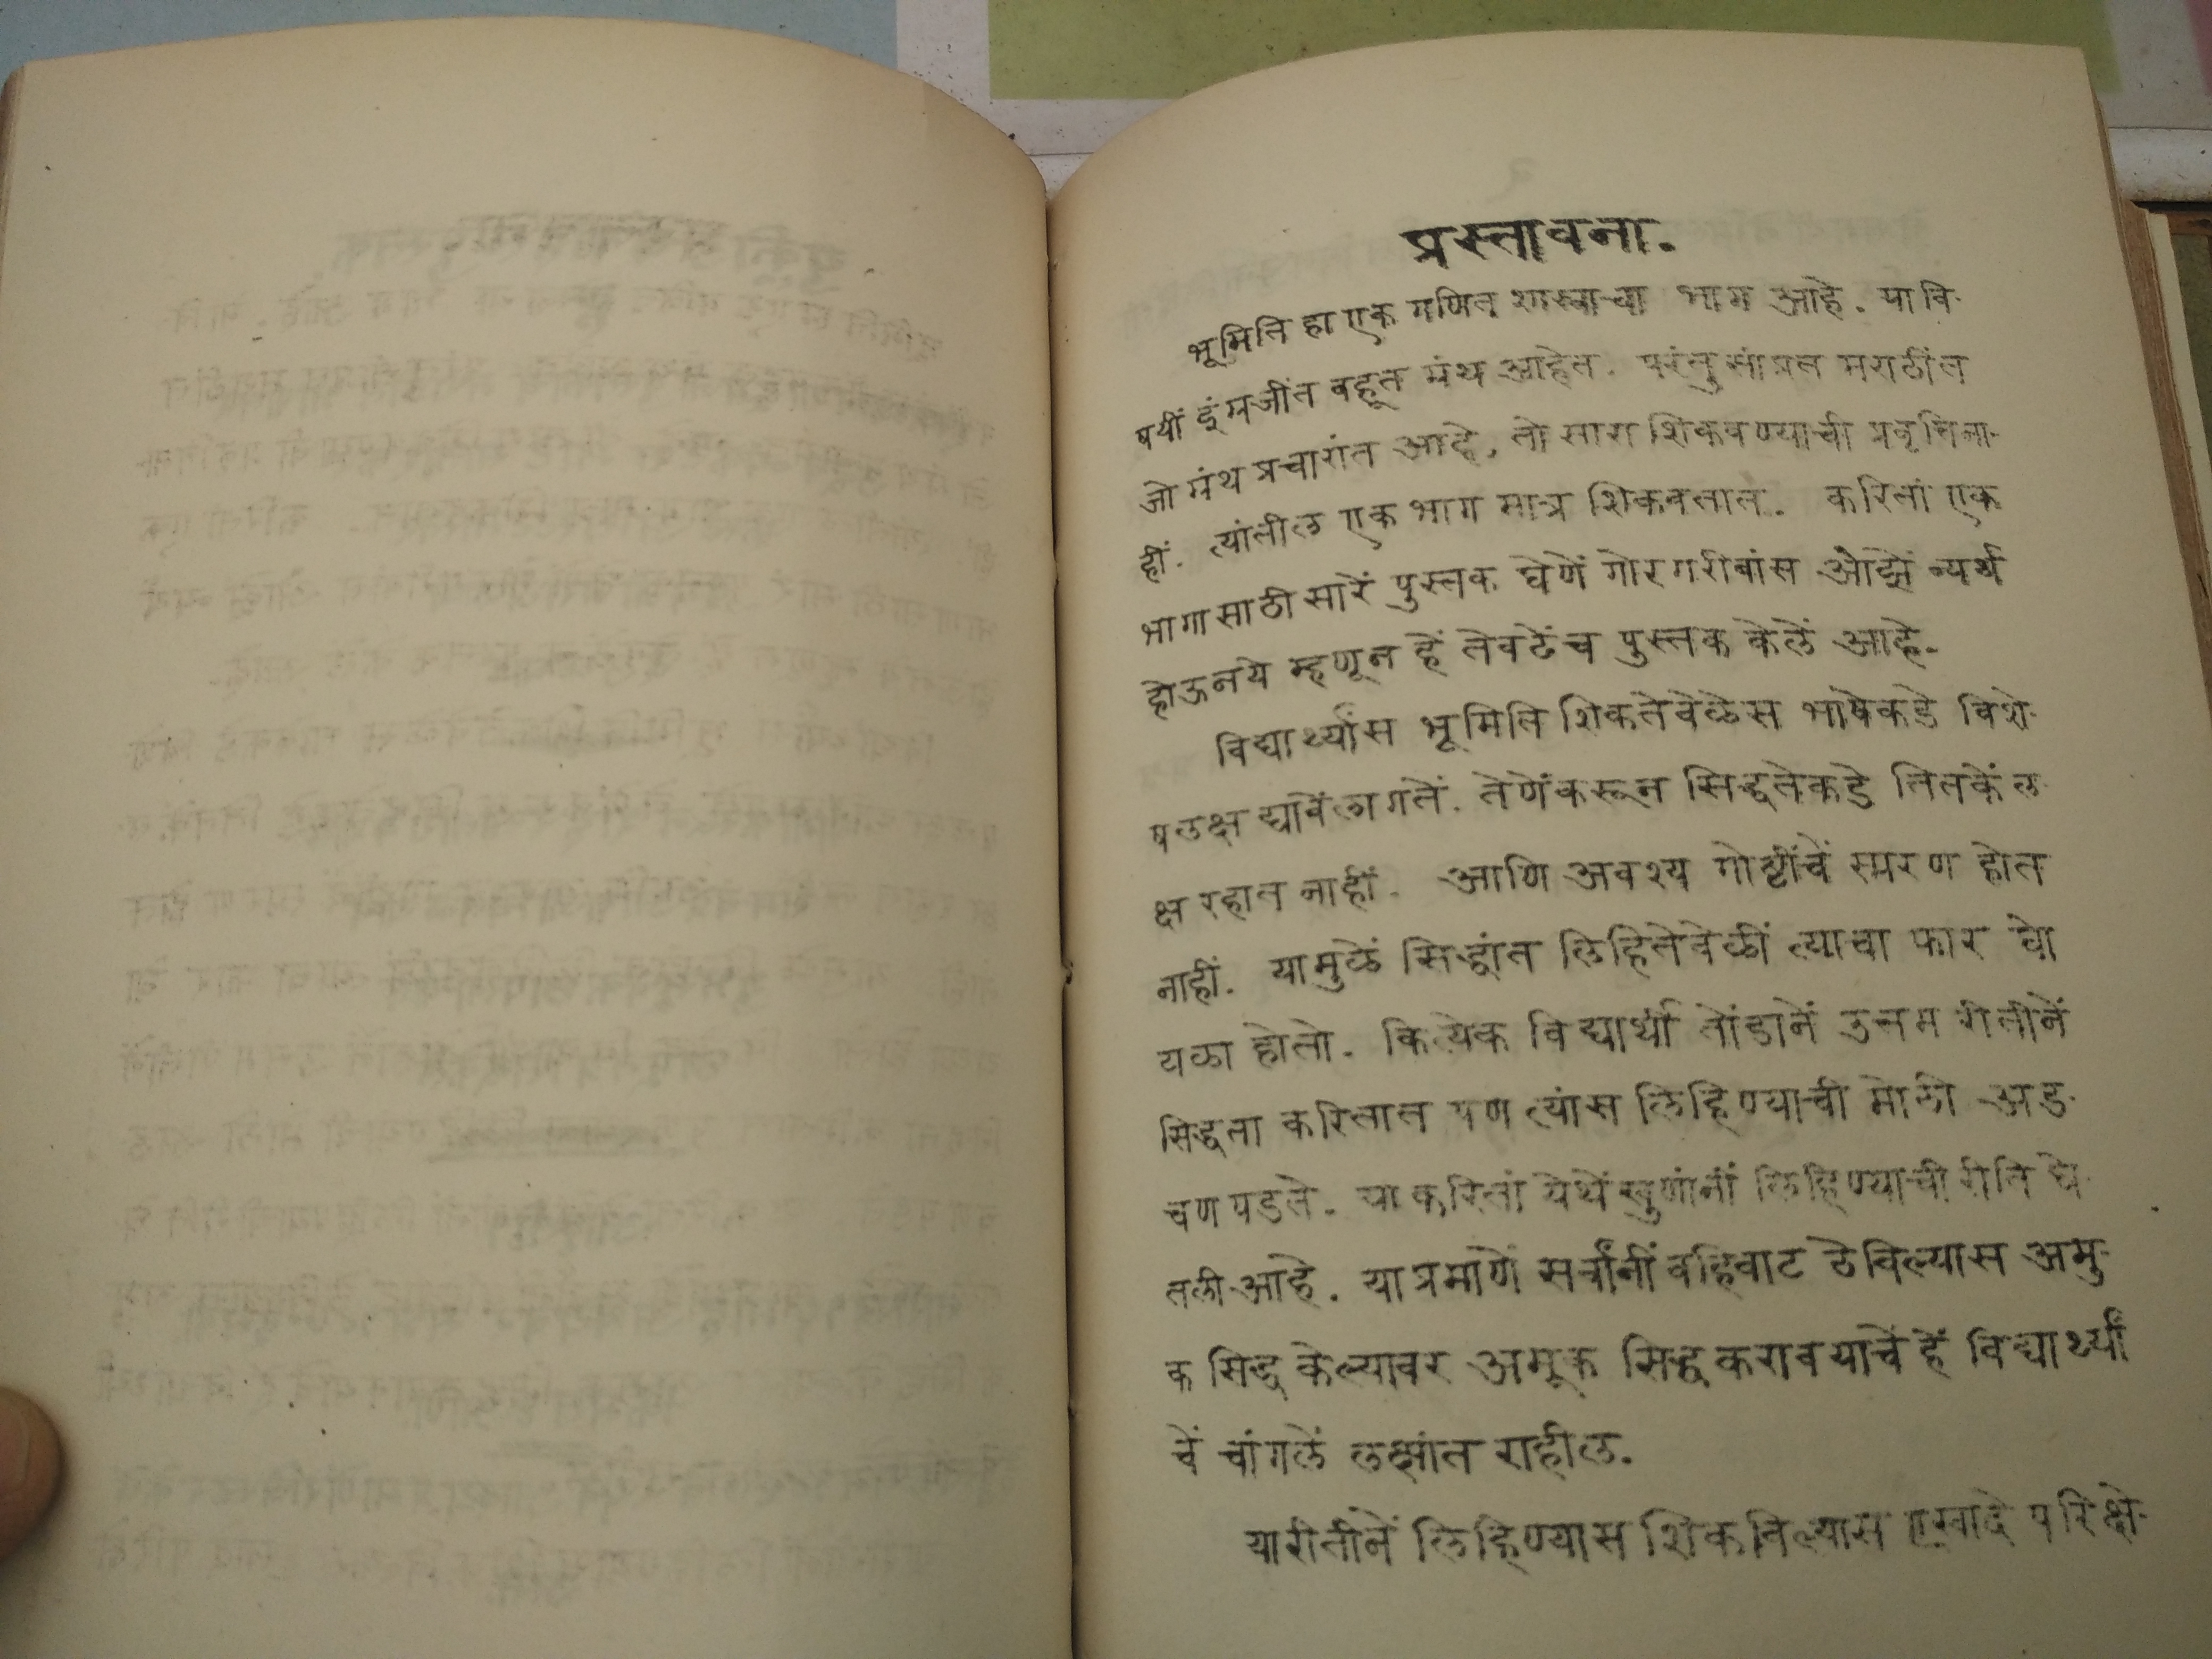 प्रस्तावना.
भूमिति हा एक गणित शास्त्राचा भाग आहे. या वि-
षयीं इंग्रजींत बहूत ग्रंथ आहेत. परंतु सांप्रत मराठींत
जो ग्रंथ प्रचारांत आहे, तो सारा शिकवण्याची प्रवृत्ति ना-
हीं. त्यांतील एक भाग मात्र शिकवतात. करितां एक
भागासाठी सारें पुस्तक घेणें गोरगरीबांस ओझें व्यर्थ
होऊ नये म्हणून हें तेवढेंच पुस्तक केलें आहे.
विद्यार्थ्यांस भूमिति शिकतेवेळेस भाषेकडे विशे-
ष लक्ष द्यावें लागतें. तेणेंकरून सिद्धतेकडे तितकें ल-
क्ष रहात नाहीं. आणि अवश्य गोष्टींचें स्मरण होत
नाहीं. यामुळें सिद्धांत लिहितेवेळीं त्याचा फार घो
यळा होतो. कित्येक विद्यार्थी तोंडानें उत्तम रीतीनें
सिद्धता करितात पण त्यांस लिहिण्याची मोठी अड-
चण पडते. या करितां येथें खुणांनीं लिहिण्याची रीति घे-
तली आहे. या प्रमाणें सर्वांनीं वहिवाट ठेविल्यास अमु-
क सिद्ध केल्यावर अमूक सिद्ध करावयाचें हें विद्यार्थ्यां
चें चांगलें लक्षांत राहील.
या रीतीनें लिहिण्यास शिकविल्यास एखादे परिक्षे-